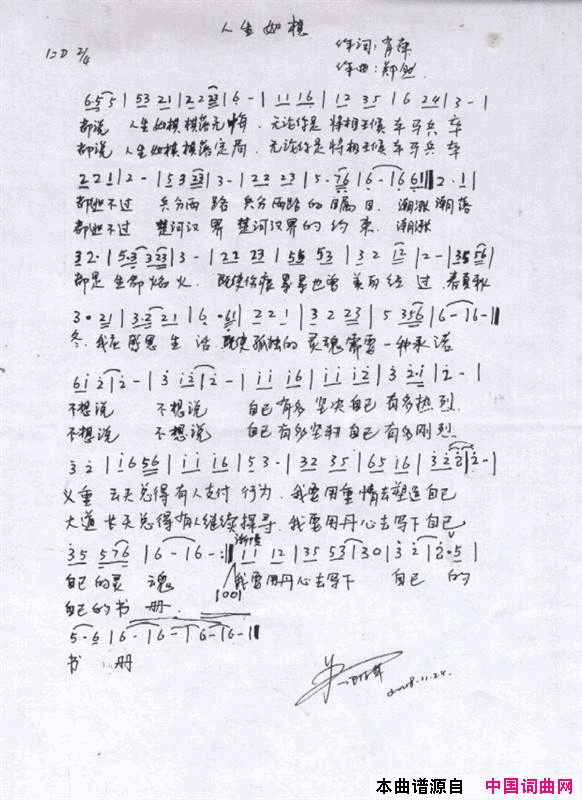 人生如棋
1=D 2/4
作词：肖萍
作曲：郑
6 5 5 | 5 3 2 1 | 2 2 2 3 | 6 - | 1 1 1 6 | 1 2 3 5 | 6 2 4 | 3 - |
都说 人生如棋棋落无悔．无论你是将相王候车马兵卒
都说 人生如棋棋落定局．无论你是将相王候车马兵卒
2 2 1 | 2 - | 5 3 2 3 | 3 - | 2 2 2 3 | 5 · 7 6 | 6 - | 6 6 1 | 2 · 1 |
都逃不过 兵分两路 兵分两路的瞩目．潮涨潮落
都逃不过 楚河汉界 楚河汉界的约束．潮涨
3 2 · | 5 · 3 3 2 3 | 3 - | 2 2 2 3 | 5 5 5 3 | 3 2 1 2 | 2 - | 3 5 5 6 |
都是生命焰火．既使伤痕累累也曾美丽经过．春夏秋
3 · 2 1 | 3 · 2 2 1 | 6 · 6 1 | 2 2 1 | 3 2 2 3 | 5 3 5 6 | 6 - | 6 - ‖
冬．我在感恩生活．既使孤独的灵魂需要一种承诺
6 1 2 | 2 - | 3 1 2 | 2 - | 1 1 1 6 | 1 1 1 1 | 3 2 · 1 | 2 - |
不想说 不想说 自己有多坚决自己有多热烈．
不想说 不想说 自己有多坚韧自己有多刚烈．
3 2 | 1 6 5 6 | 1 1 1 6 | 5 3 · | 3 2 3 5 | 6 5 1 6 | 3 2 2 | 2 - |
义重云天总得有人支付行为．我要用重情去塑造自己
大道长天总得有人继续探寻．我要用丹心去写下自己
3 5 5 7 6 | 6 - | 6 - :‖ 1 1 1 2 | 3 5 5 3 | 3 0 | 3 2 | 2 · 5 |
渐慢
自己的灵魂 我要用丹心去写下 自己的
自己的书册．
5 · 6 | 6 - | 6 - | 6 - | 6 - ‖
书册
2008.11.24.
本曲谱源自 中国词曲网